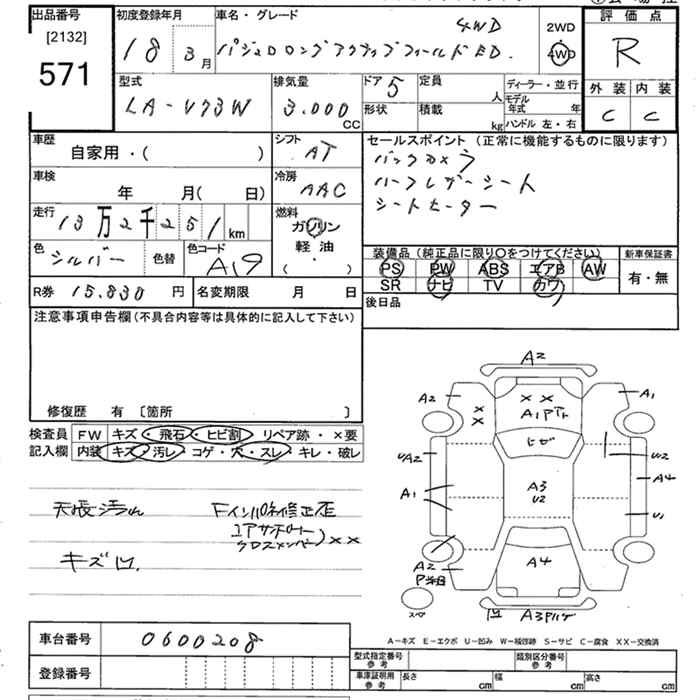 出品番号
[2132]
571
初度登録年月
18 3月
車名・グレード
4WD
パジェロロングアクティブフィールドED.
2WD
4WD
評価点
R
外装 内装
C C
型式
LA-V73W
排気量
3.000 CC
ドア 5
形状
定員 人
積載 kg
ディーラー・並行
モデル年式 年
ハンドル 左・右
車歴
自家用・( )
シフト
AT
セールスポイント (正常に機能するものに限ります)
バックカメラ
ハーフレザーシート
シートヒーター
車検
年 月( 日)
冷房
AAC
走行
13万2千251km
燃料
ガソリン
軽油
( ・ )
色
シルバー
色替
色コード
A19
装備品 (純正品に限り○をつけてください)
PS PW ABS エアB AW
SR ナビ TV カワ
新車保証書
有・無
R券 15.830 円
名変期限 月 日
後日品
注意事項申告欄 (不具合内容等は具体的に記入して下さい)
修復歴 有 〔箇所 〕
検査員記入欄
FW キズ・飛石・ヒビ割 リペア跡・×要
内装 キズ・汚レ・コゲ・穴・スレ・キレ・破レ
天張汚れ
キズ凹
Fインパネ修正歪
コアサポート
クロスメンバー ) ××
A2
A2
××
××
A1
ヒビ
UA2
U2
A3
U2
A4
A1
U1
A2
A4
スペア
凹
A-キズ E-エクボ U-凹み W-補修跡 S-サビ C-腐食 XX-交換済
車台番号
0600208
登録番号
型式指定番号
参考
類別区分番号
参考
車庫証明用
参考
長さ cm
幅 cm
高さ cm